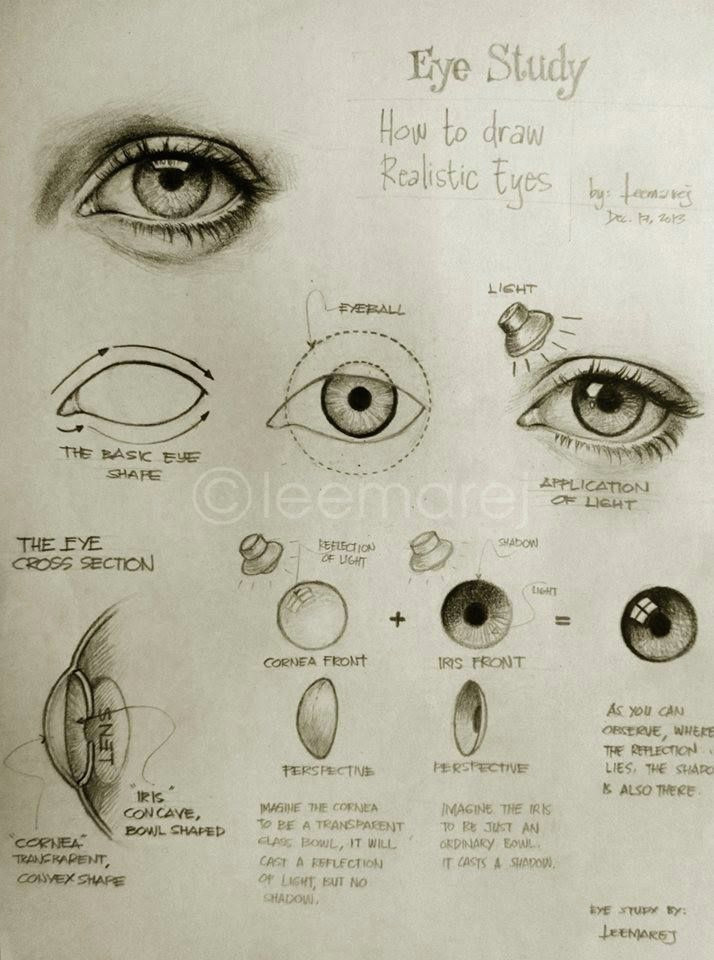 Eye Study
How to draw
Realistic Eyes
by: leemarej
Dec. 17, 2013
EYEBALL
LIGHT
THE BASIC EYE
SHAPE
APPLICATION
OF LIGHT
©leemarej
THE EYE
CROSS SECTION
REFLECTION
OF LIGHT
SHADOW
LIGHT
+
=
CORNEA FRONT
IRIS FRONT
LENS
PERSPECTIVE
PERSPECTIVE
"IRIS"
CONCAVE,
BOWL SHAPED
"CORNEA"
TRANSPARENT,
CONVEX SHAPE
IMAGINE THE CORNEA
TO BE A TRANSPARENT
GLASS BOWL, IT WILL
CAST A REFLECTION
OF LIGHT, BUT NO
SHADOW.
IMAGINE THE IRIS
TO BE JUST AN
ORDINARY BOWL.
IT CASTS A SHADOW.
AS YOU CAN
OBSERVE, WHERE
THE REFLECTION
LIES. THE SHADO
IS ALSO THERE.
EYE STUDY BY:
LEEMAREJ